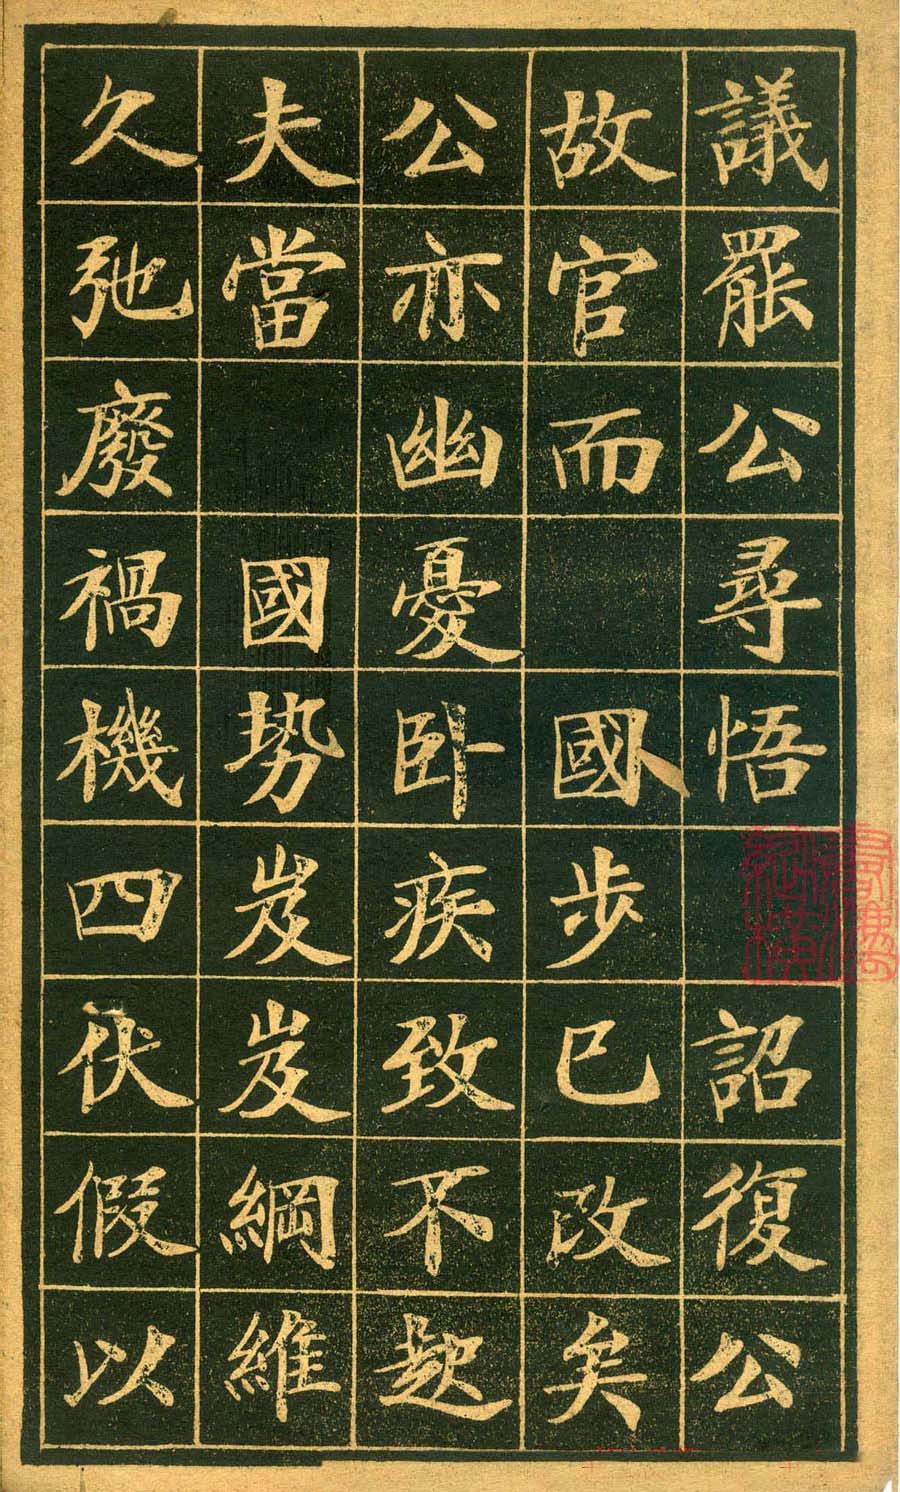 議罷公尋悟詔復公
故官而國步已改矣
公亦幽憂卧疾致不起
夫當國勢岌岌綱維
久弛廢禍機四伏假以